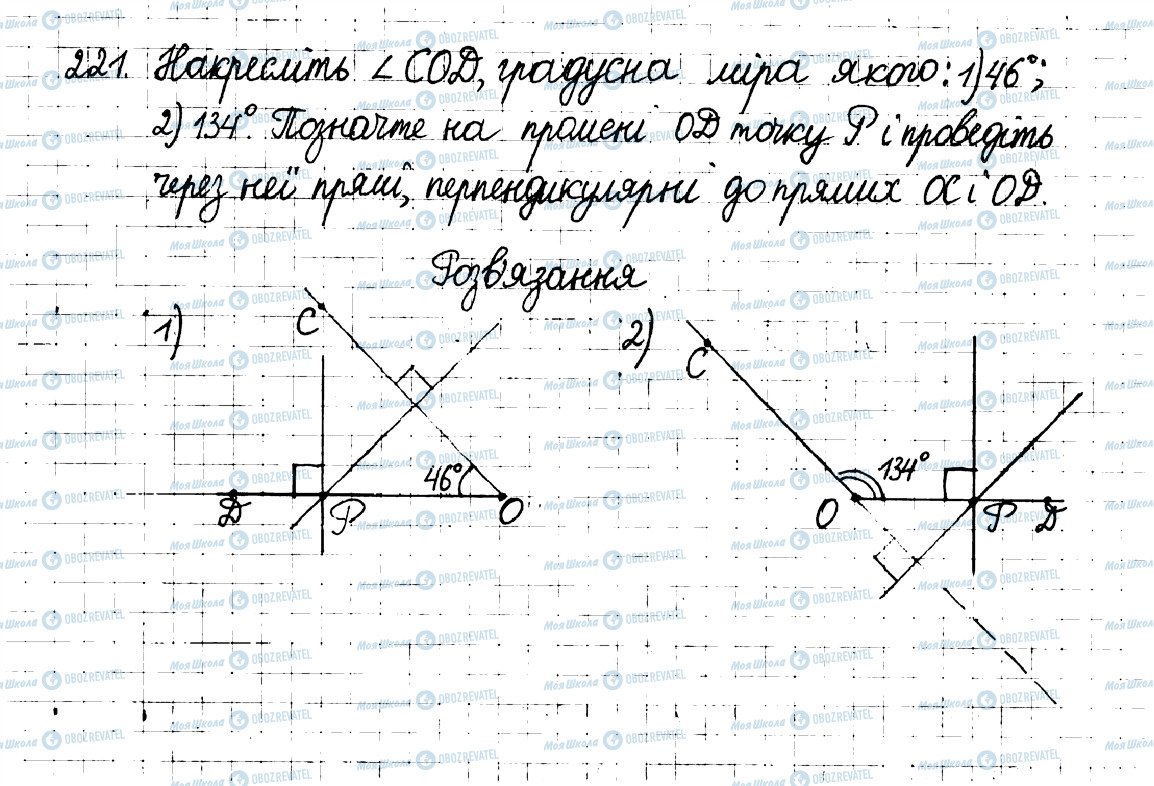 221. Накресліть ∠COD, градусна міра якого: 1) 46°;
2) 134°. Позначте на промені OD точку P і проведіть
через неї прямі, перпендикулярні до прямих OC і OD.
Розв'язання
1)
C
46°
D
P
O
2)
C
134°
O
P
D
МояШкола OBOZREVATEL